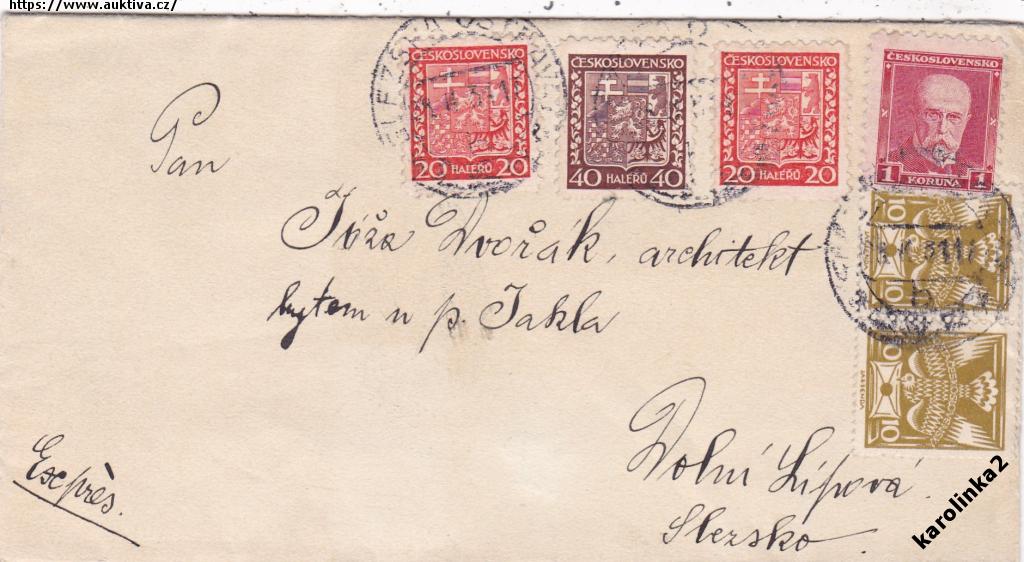 https://www.auktiva.cz/
ČESKOSLOVENSKO
20 HALÉŘŮ 20
ČESKOSLOVENSKO
40 HALÉŘŮ 40
ČESKOSLOVENSKO
20 HALÉŘŮ 20
ČESKOSLOVENSKO
1 KORUNA 1
10 10
10 10
Pan
Jóža Dvořák, architekt
bytem u p. Jakla
Dolní Lípová.
Slezsko.
Exprès.
karolinka2